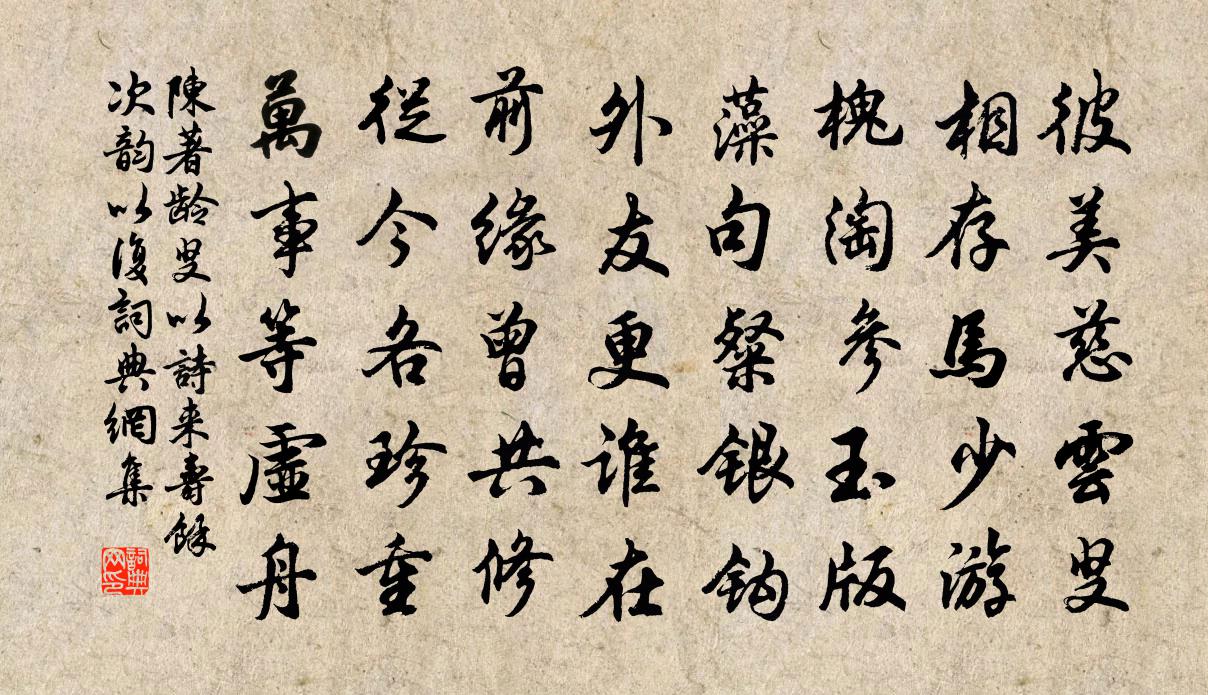 彼美慈雲叟
相存馬少游
槐淘參玉版
藻句粲銀鈎
外友更誰在
前緣曾共修
從今各珍重
萬事等虛舟
陳著龄叟以詩来壽餘
次韵以復詞典網集
詞典网印